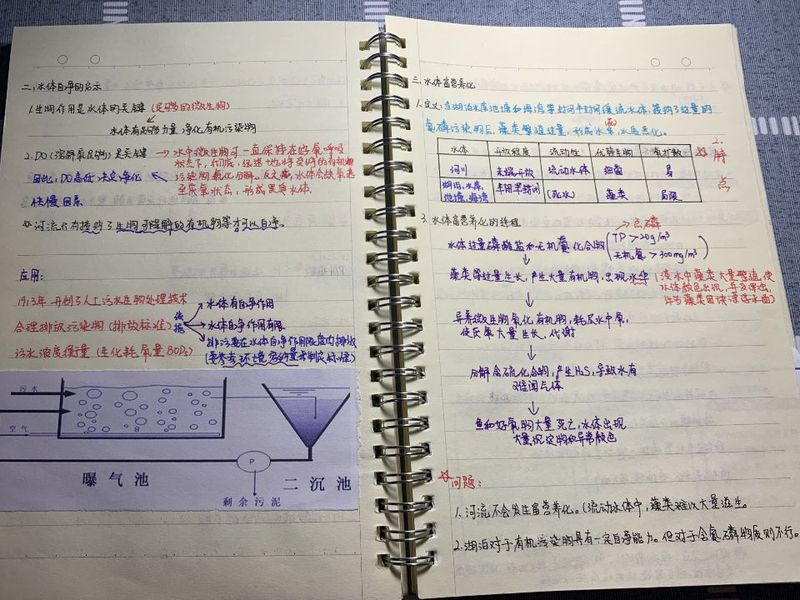 二.水体自净的启示
1.生物作用是水体的关键(足够的微生物)
水体有足够力量净化有机污染物
2.DO(溶解氧足够)是关键 → 水中微生物可一直保持在好氧呼吸
状态下,彻底、迅速地将受纳的有机物
因此,DO高低决定净化
污染物氧化分解。反之,水体会快氧甚
快慢因素
至厌氧状态,形成黑臭水体
河流只有接纳了生物可降解的有机物等才可以自净。
应用:
1913年开创了人工污水生物处理技术
合理排放污染物(排放标准)
依据
水体有自净作用
水体自净作用有限
排污要在水体自净作用限度内排放
(要参考环境容量来制定标准)
污水浓度衡量(生化耗氧量BOD₅)
污水
空气
曝气池
P
二沉池
剩余污泥
三.水体富营养化
1.定义:在湖泊水库池塘和海湾等封闭半封闭缓流水体,接纳了过量的
氮磷污染物后,藻类过量,形成水华,水质恶化。
2.
水体 开放程度 流动性 优势生物 氧扩散
河川 末端开放 流动水体 细菌 易
湖泊、水库、池塘、海湾 半闭或封闭 (死水) 藻类 局限
特点
3.水体富营养化的过程
→总磷
水体过量磷酸盐和无机氮化合物 (TP>20g/m³ 无机氮>300mg/m³)
藻类等过量生长,产生大量有机物,出现水华
(淡水中藻类大量繁殖,使
水体颜色出现
异养微生物氧化有机物,耗尽水中氧,
使厌氧大量生长、代谢
分解含硫化合物,产生H₂S,导致水有
难闻气体
鱼和好氧物大量死亡,水体出现
大量沉淀物和异常颜色
问题:
1.河流不会发生富营养化。(流动水体中,藻类难以大量滋生。
2.湖泊对于有机污染物具有一定自净能力。但对于含氮磷物质则不行。